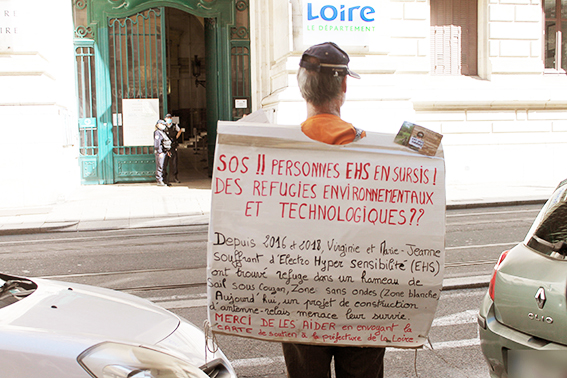 Loire
LE DÉPARTEMENT
SOS !! PERSONNES EHS EN SURSIS !
DES REFUGIES ENVIRONNEMENTAUX
ET TECHNOLOGIQUES ??
DEPUIS 2016 et 2018, Virginie et Marie-Jeanne
souffrant d'Electro Hyper sensibilité (EHS)
ont trouvé refuge dans un Hameau de
sail sous Couzan, Zone sans ondes (Zone blanche)
Aujourd'hui, un projet de construction
d'antenne-relais menace leur survie.
MERCI DE LES AIDER en envoyant la
CARTE de soutien à la préfecture de la Loire
CLIO